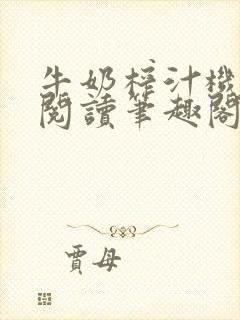 牛奶榨汁機
閱讀筆趣閣
賈母